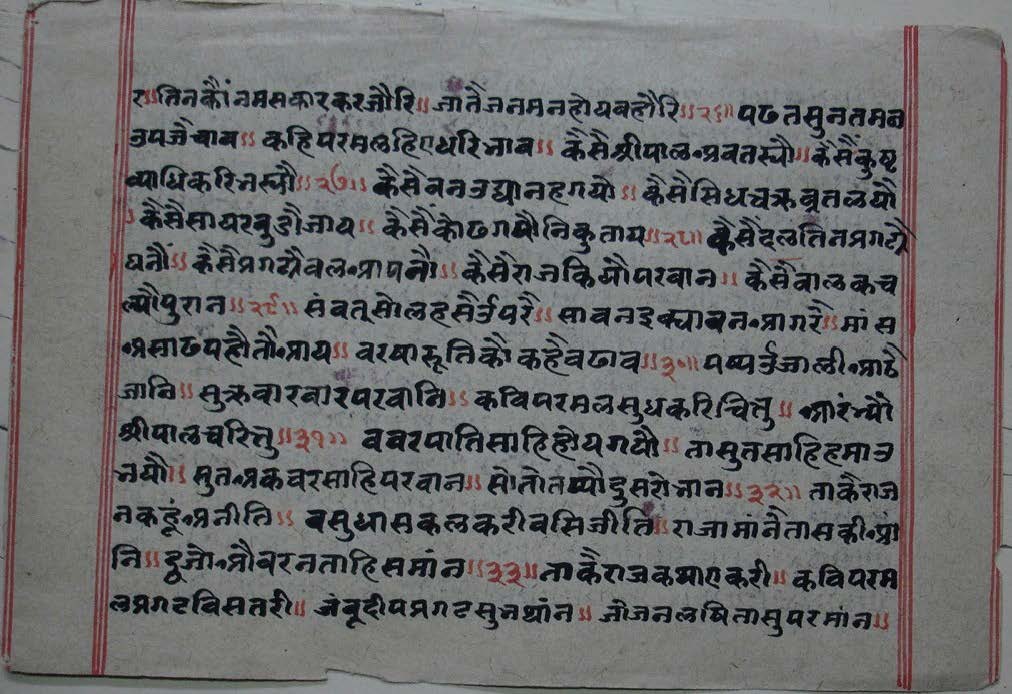 र॥तिनकौंनमसकारकरजौरि॥जातैजनमनहोयबहौरि॥२६॥पढतसुनतमन
उपजैचाव॥कहिपरमलहिएधरिभाव॥कैसैश्रीपालअवतस्यौ॥कैसैंकुष्ट
व्याधिकरिभस्यौ॥२७॥कैसैवनउद्यानहगयौ॥कैसैसिधचक्रव्रतलयौ
॥कैसैसायरबुडौजाय॥कैसैंकोढगयौनिकुताय॥२८॥कैसैंदलतिनप्रगटौ
घनौं॥कैसैप्रगटौबलआपनौ॥कैसैराजकियौपरवान॥कैसैबालकच
ल्यौपुरान॥२९॥संवतसोलहसैउपरै॥सावनइक्यावनआगरै॥मांस
असाढपहौतौआय॥वरषारूतिकौकहैबढाव॥३०॥पष्यउजालीआठै
जानि॥सुक्रवारवारपरवानि॥कविपरमलसुधकरिचितु॥आरंभ्यौ
श्रीपालचरितु॥३१॥बबरपातिसाहिहोयगयौ॥तासुतसाहिहमाउ
भयौ॥सुतअकबरसाहिपरवान॥सोतोतप्यौदुसरोभान॥३२॥ताकैराज
नकहूंअनीति॥वसुधासकलकरीबसिजीति॥राजामांनैतासकीआं
नि॥दूजोऔवरनताहिसमांन॥३३॥ताकैराजकथाएकरी॥कविपरम
लप्रगटविसतरी॥जंबूदीपप्रगटसुनथांन॥जोजनलषितासुपरमांन॥